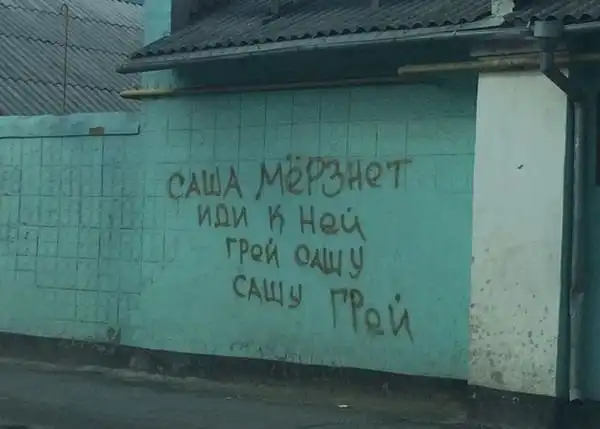 САША МЁРЗНЕТ
ИДИ К НЕЙ
ГРЕЙ САШУ
САШУ ГРЕЙ